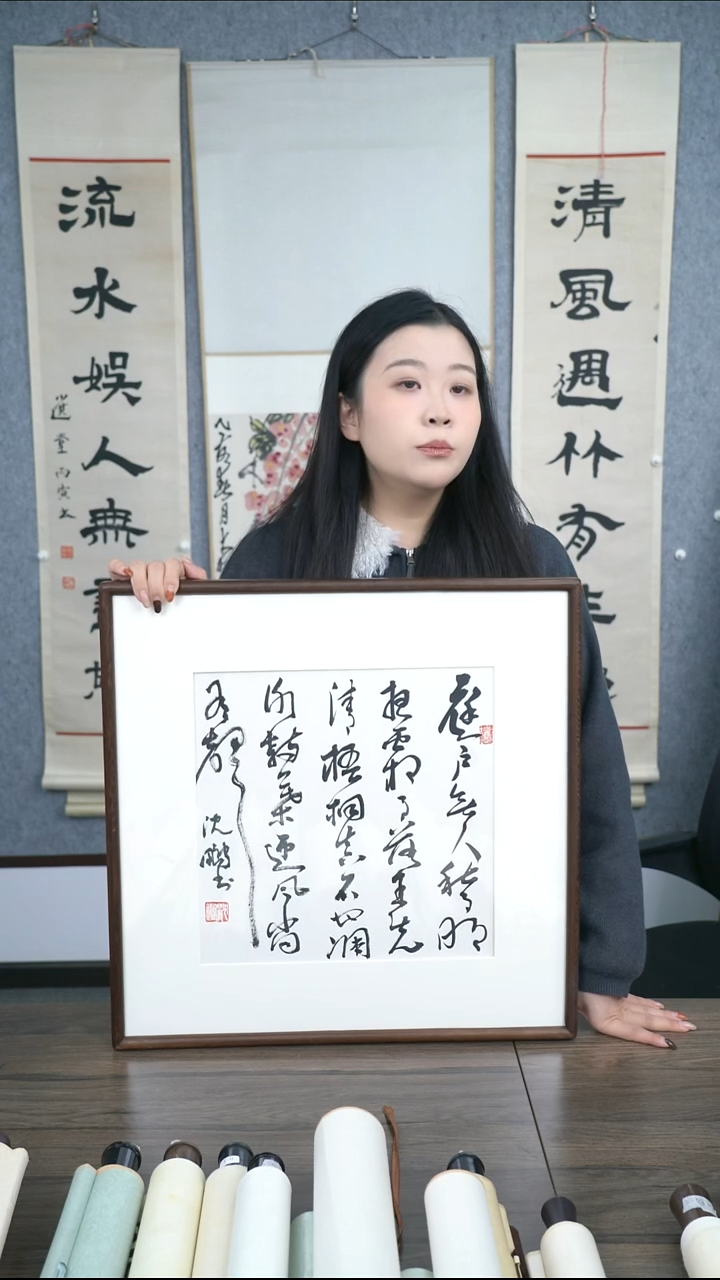 清風遇竹有生
流水娛人無
選堂丙寅
庭户無人秋月明
夜霜欲落氣先
清梧桐真不甘凋
謝數葉迎風尚
有聲
沈鵬書